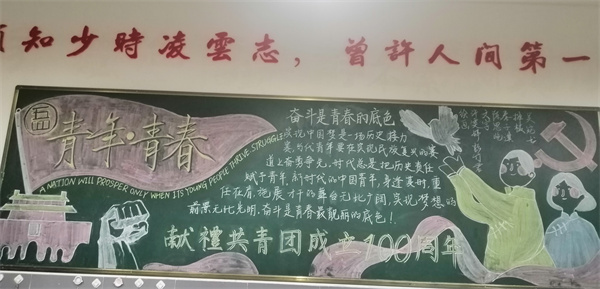 须知少時凌雲志，曾許人间第一
五四
青年·青春
A NATION WILL PROSPER ONLY WHEN ITS YOUNG PEOPLE THRIVE STRUGGLE
奋斗是青春的底色
实现中国梦是一场历史接力
赛，当代青年要在实现民族复兴的赛
道上奋勇争先。时代总是把历史责任
赋予青年，新时代的中国青年，身逢其时，重
任在肩，施展才干的舞台无比广阔，实现梦想的
前景无比光明。奋斗是青春最靓丽的底色！
献禮共青团成立100周年